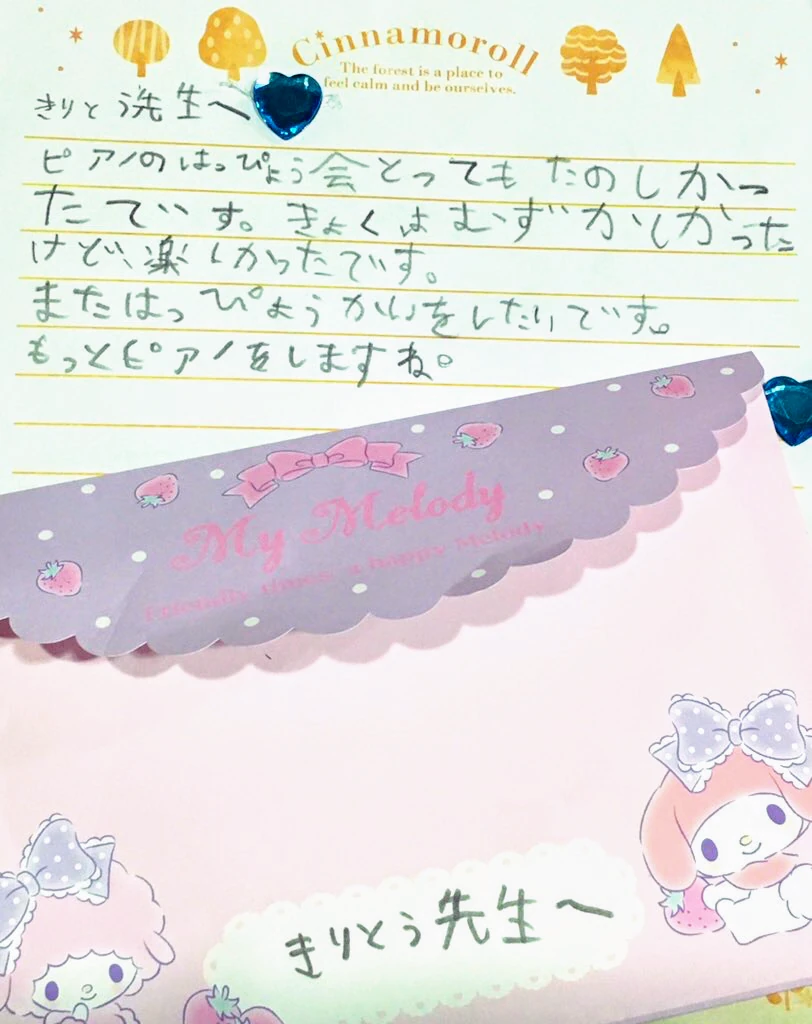 Cinnamoroll
The forest is a place to
feel calm and be ourselves.
きりとう先生へ
ピアノのはっぴょう会とってもたのしかっ
たです。きょくはむずかしかった
けど、楽しかったです。
またはっぴょうかいをしたいです。
もっとピアノをしますね。
My Melody
Friendly times, a happy Melody
きりとう先生へ